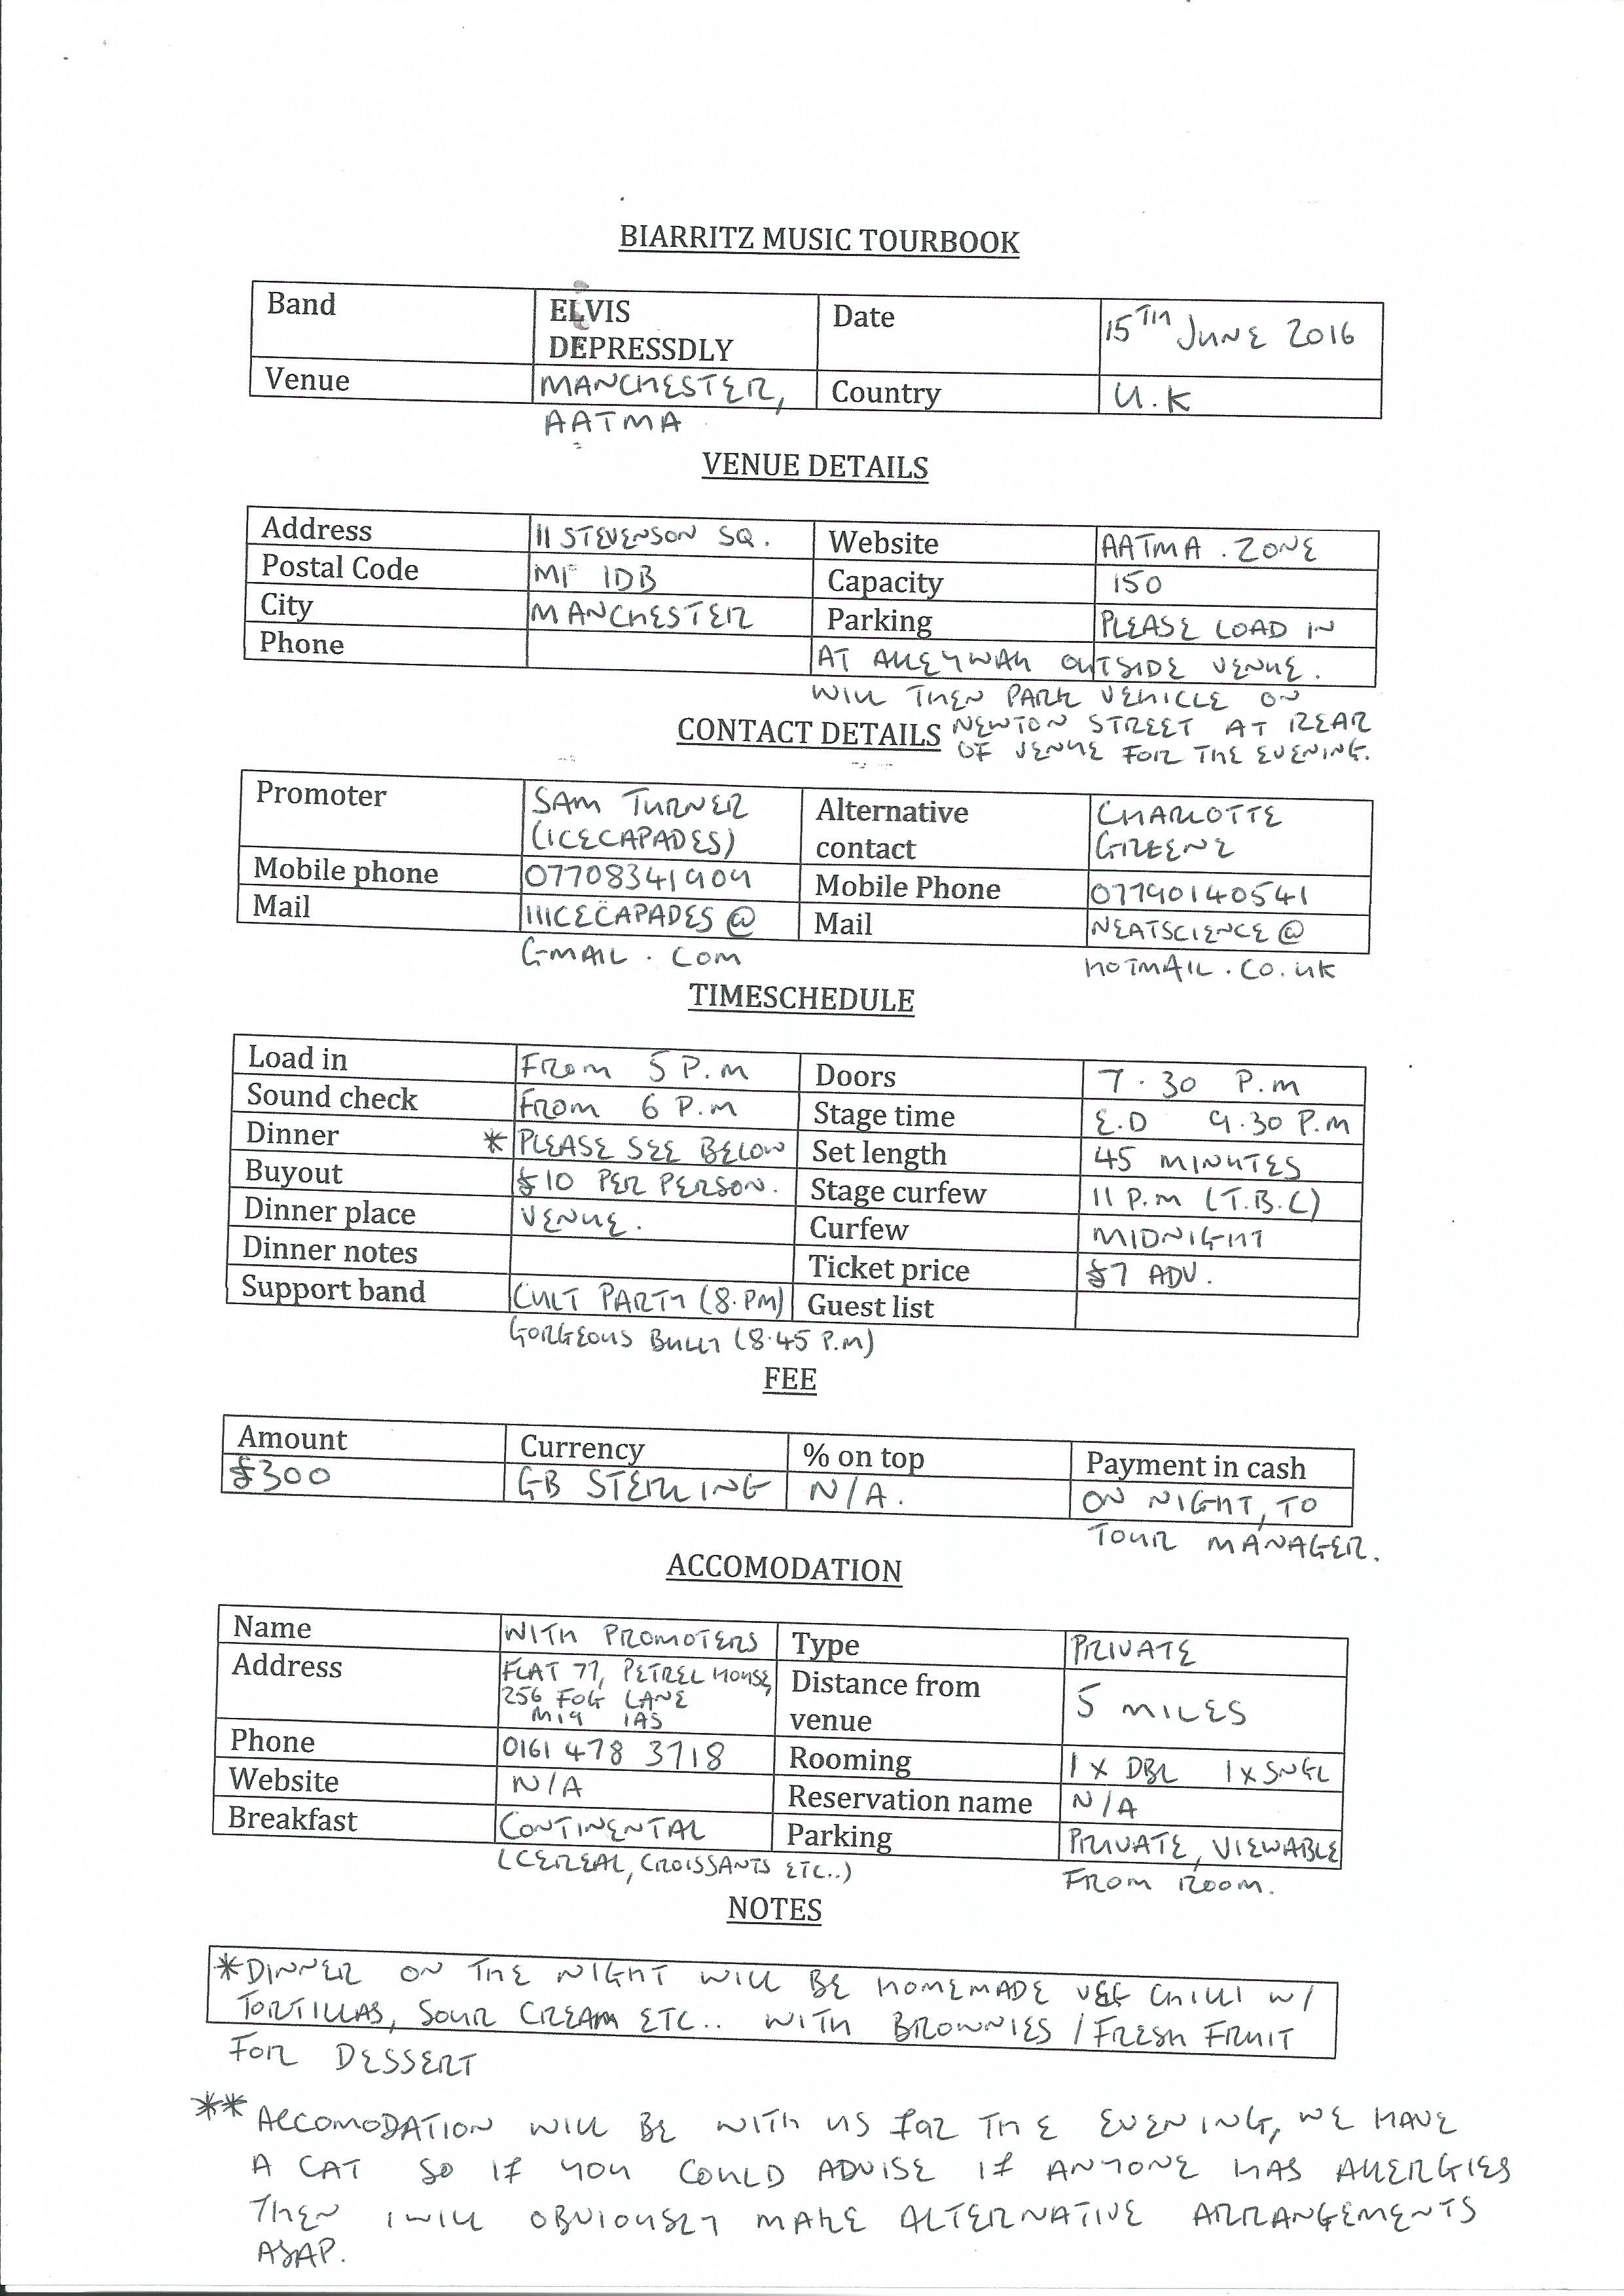 BIARRITZ MUSIC TOURBOOK
Band ELVIS DEPRESSDLY Date 15TH JUNE 2016
Venue MANCHESTER, Country U.K
AATMA
VENUE DETAILS
Address 11 STEVENSON SQ. Website AATMA.ZONE
Postal Code M1 1DB Capacity 150
City MANCHESTER Parking PLEASE LOAD IN
Phone AT ALLEYWAY OUTSIDE VENUE.
WILL THEN PARK VEHICLE ON
CONTACT DETAILS NEWTON STREET AT REAR
OF VENUE FOR THE EVENING.
Promoter SAM TURNER (ICECAPADES) Alternative contact CHARLOTTE GREENE
Mobile phone 07708341909 Mobile Phone 07790140541
Mail IIIICECAPADES@ Mail NEATSCIENCE@
GMAIL.COM HOTMAIL.CO.UK
TIMESCHEDULE
Load in FROM 5 P.M Doors 7.30 P.M
Sound check FROM 6 P.M Stage time E.D 9.30 P.M
Dinner *PLEASE SEE BELOW Set length 45 MINUTES
Buyout £10 PER PERSON. Stage curfew 11 P.M (T.B.C)
Dinner place VENUE. Curfew MIDNIGHT
Dinner notes Ticket price £7 ADV.
Support band CULT PARTY (8.PM) Guest list
GORGEOUS BULLY (8.45 P.M)
FEE
Amount Currency % on top Payment in cash
£300 GB STERLING N/A. ON NIGHT, TO
TOUR MANAGER.
ACCOMODATION
Name WITH PROMOTERS Type PRIVATE
Address FLAT 77, PETREL HOUSE, 256 FOG LANE M19 1AS Distance from venue 5 MILES
Phone 0161 478 3718 Rooming 1 X DBL 1 X SNGL
Website N/A Reservation name N/A
Breakfast CONTINENTAL Parking PRIVATE, VIEWABLE
(CEREAL, CROISSANTS ETC..) FROM ROOM.
NOTES
*DINNER ON THE NIGHT WILL BE HOMEMADE VEG CHILLI W/
TORTILLAS, SOUR CREAM ETC.. WITH BROWNIES / FRESH FRUIT
FOR DESSERT
**ACCOMODATION WILL BE WITH US FOR THE EVENING, WE HAVE
A CAT SO IF YOU COULD ADVISE IF ANYONE HAS ALLERGIES
THEN I WILL OBVIOUSLY MAKE ALTERNATIVE ARRANGEMENTS
ASAP.